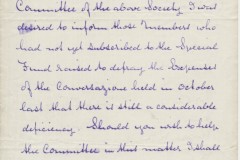 Committee of the above Society I was
desired to inform those Members who
had not yet subscribed to the Special
Fund raised to defray the Expenses
of the Conversazione held in October
last that there is still a considerable
deficiency. Should you wish to help
the Committee in this matter I shall